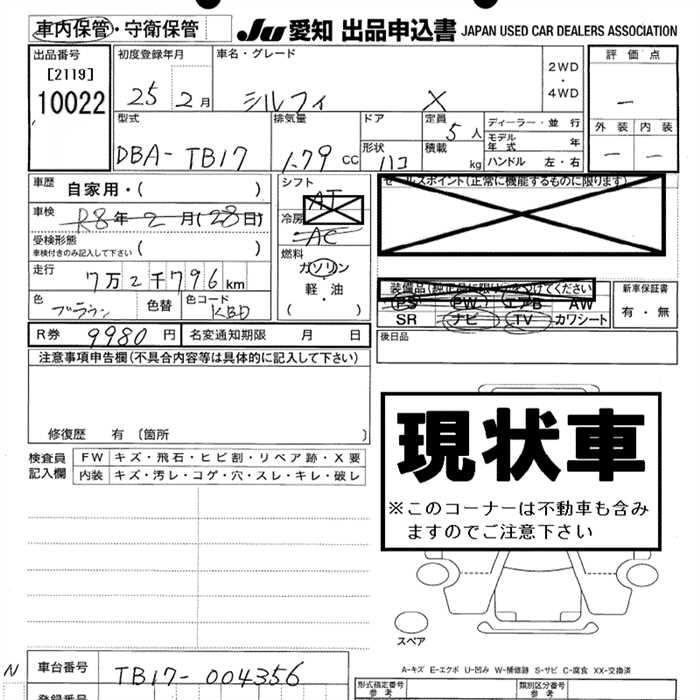 車内保管・守衛保管 JU 愛知 出品申込書 JAPAN USED CAR DEALERS ASSOCIATION
出品番号 初度登録年月 車名・グレード 2WD・4WD 評価点
[2119] 10022 25 2月 シルフィ X —
型式 排気量 ドア 定員 5人 ディーラー・並行 外装 内装
DBA-TB17 1.79cc 形状 ハコ 積載 kg モデル年式 年 — —
ハンドル 左・右
車歴 自家用・( ) シフト AT セールスポイント(正常に機能するものに限ります)
車検 R8年2月(28日) 冷房 AC
受検形態 車検付きのみ記入して下さい ( ) 燃料
走行 7万2千796km ガソリン・軽・油 ( )
装備品(純正品に限り○をつけてください) 新車保証書
色 ブラウン 色替 色コード KBD PS PW エアB AW 有・無
SR ナビ TV カワシート
R券 9980円 名変通知期限 月 日 後日品
注意事項申告欄(不具合内容等は具体的に記入して下さい)
修復歴 有 〔箇所 〕
現状車
※このコーナーは不動車も含み
ますのでご注意下さい
検査員記入欄 FW キズ・飛石・ヒビ割・リペア跡・X要
内装 キズ・汚レ・コゲ・穴・スレ・キレ・破レ
スペア
A-キズ E-エクボ U-凹み W-補修跡 S-サビ C-腐食 XX-交換済
N 車台番号 TB17-004356 形式指定番号 参考 類別区分番号 参考
登録番号